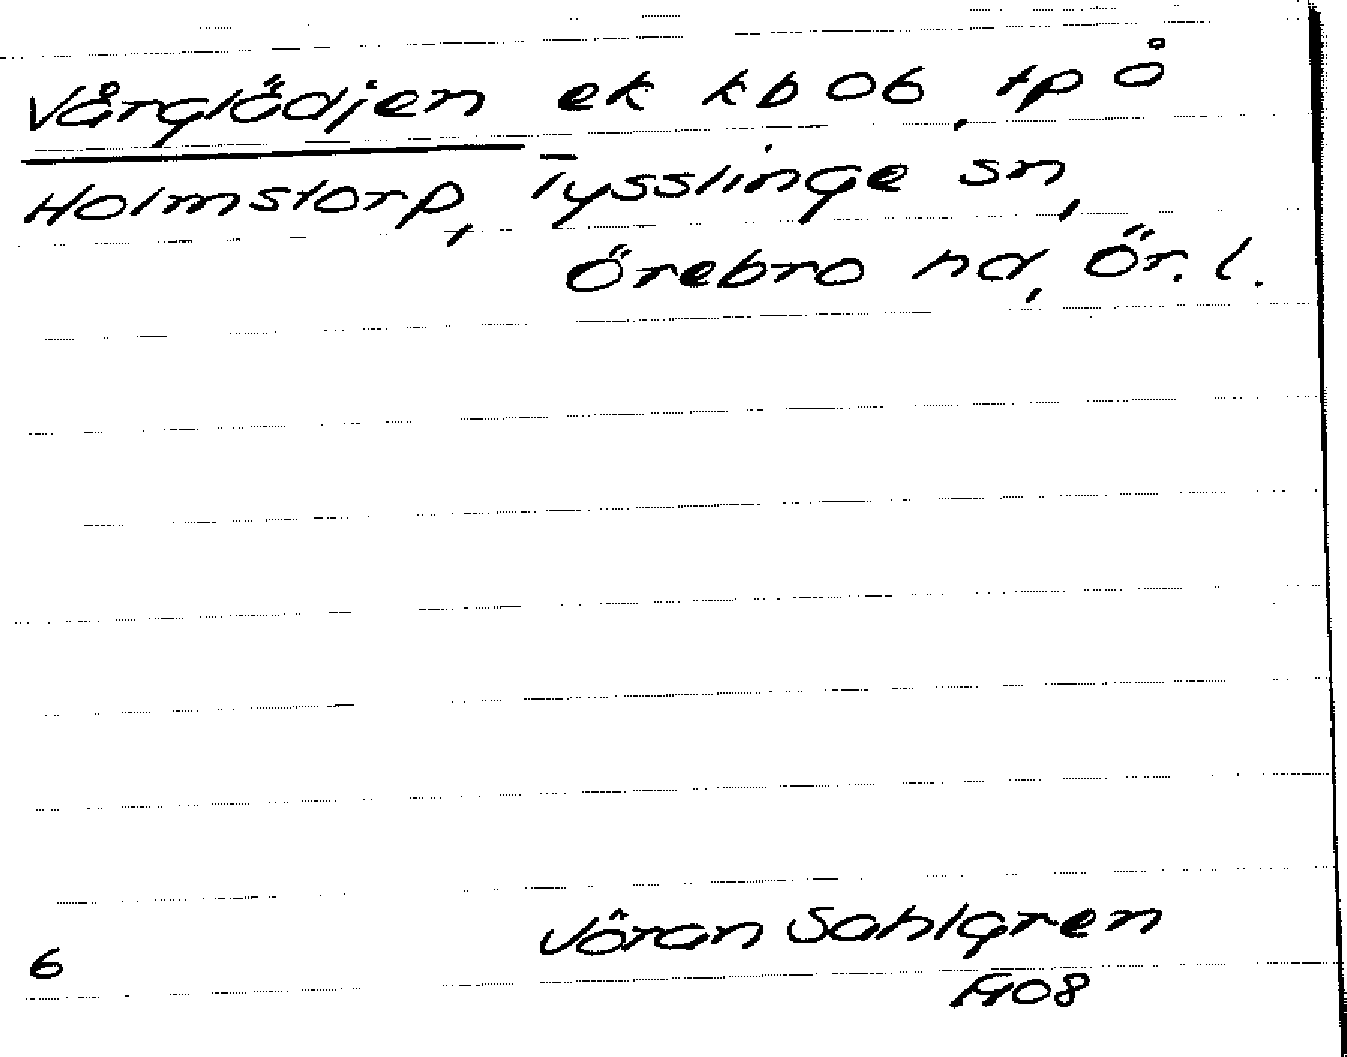 Vårglädjen ek kb 06, tp å
Holmstorp, Tysslinge sn,
Örebro hd, Ör. l.
6 Jöran Sahlgren
1908